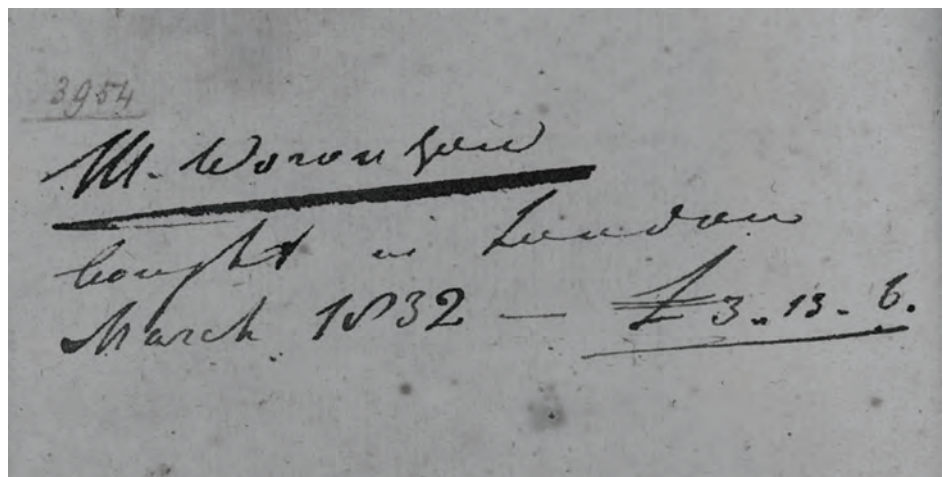 3954
M. Woronzow
bought in London
March 1832 — £3..13-6.